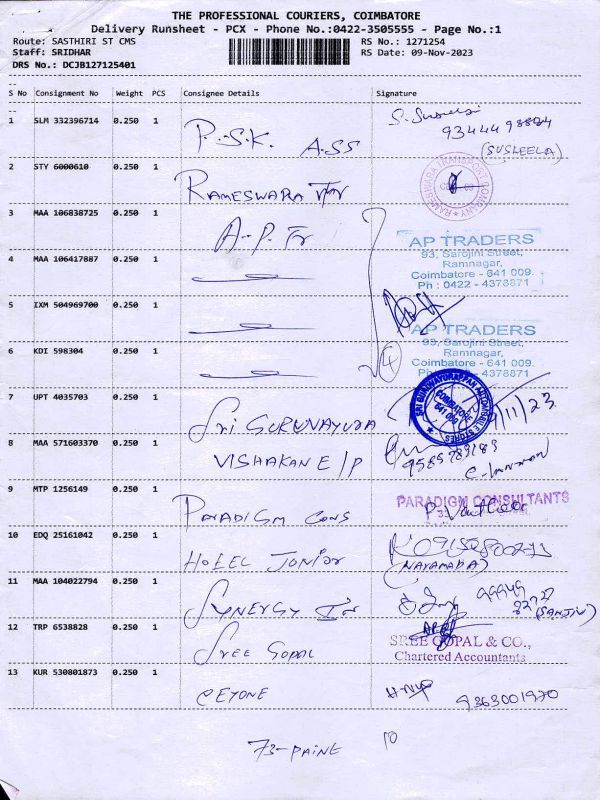 THE PROFESSIONAL COURIERS, COIMBATORE
Delivery Runsheet - PCX - Phone No.:0422-3505555 - Page No.:1
Route: SASTHIRI ST CMS RS No.: 1271254
Staff: SRIDHAR RS Date: 09-Nov-2023
DRS No.: DCJB127125401
S No Consignment No Weight PCS Consignee Details Signature
1 SLM 332396714 0.250 1 P.S.K. ASS
(SUSLEELA)
2 STY 6000610 0.250 1 RAMESWARA
RAMESWARA TRANSPORT COMPANY
3 MAA 106838725 0.250 1 A.P. Tr
AP TRADERS
93, Sarojini Street,
Ramnagar,
Coimbatore - 641 009.
Ph : 0422 - 4378871
4 MAA 106417887 0.250 1
5 IXM 504969700 0.250 1
AP TRADERS
93, Sarojini Street,
Ramnagar,
Coimbatore - 641 009.
4378871
6 KDI 598304 0.250 1 4
7 UPT 4035703 0.250 1 Sri GURUVAYURA
SRI GURUVAYURAPPAN AUTOMOBILE STORES
COIMBATORE
641 009
9/11/23
8 MAA 571603370 0.250 1 VISHAKAN E/P
9585789183
9 MTP 1256149 0.250 1 PARADIGM CONS
PARADIGM CONSULTANTS
10 EDQ 25161042 0.250 1 HOTEL JUNIOR
11 MAA 104022794 0.250 1 SYNERGY
(SANJIV)
12 TRP 6538828 0.250 1 SREE GOPAL
SREE GOPAL & CO.,
Chartered Accountants
13 KUR 530801873 0.250 1 CEYONE 9363001970
73-PAINE 10